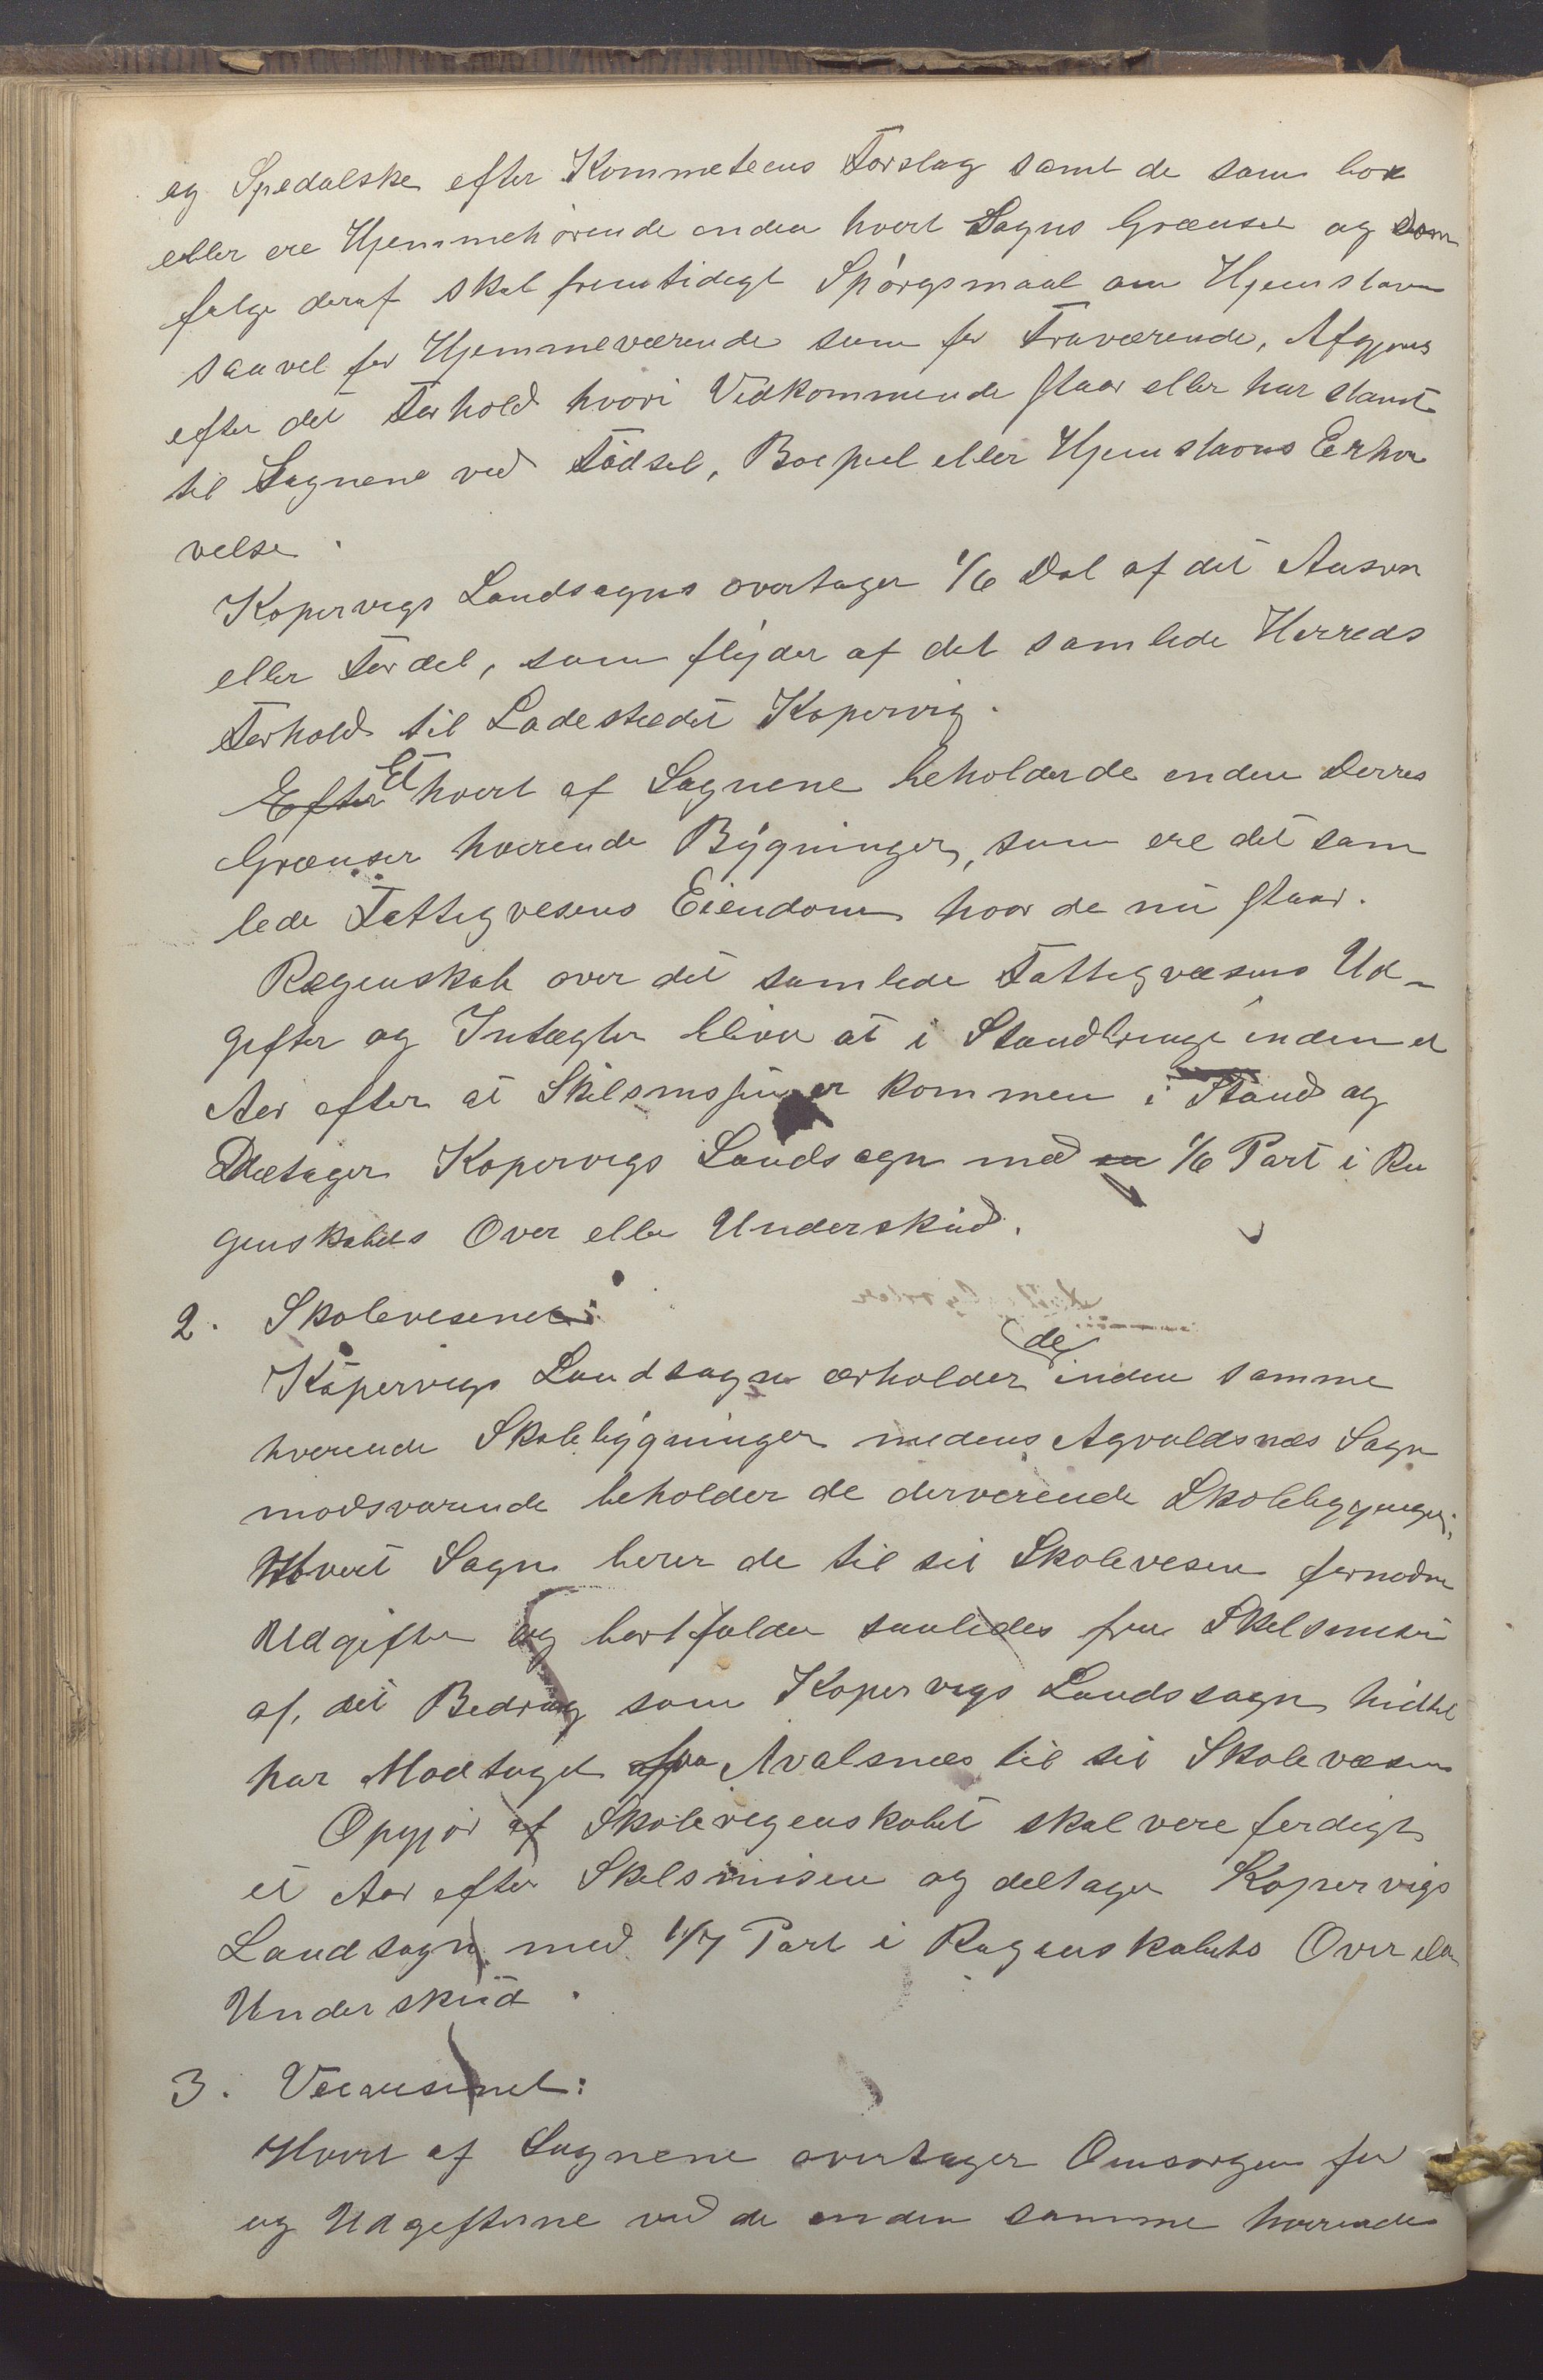 og Spedalske efter Kommeteens Forslag samt de som bor
eller ere Hjemmehörende inden hvert Sogns Grænser og som
følge deraf skal fremtidigt Spörgsmaal om Hjemstavn
saavel for Hjemmeværende som for Fraværende, Afgjøres
efter det Forhold hvori Vedkommende staar eller har staaet
til Sognene ved Födsel, Boepæl eller Hjemstavns Erhver
velse.
Kopervigs Landsogns overtager 1/6 Del af det Ansvar
eller Fordel, som flyder af det samlede Herreds
Forhold til Ladestedet Kopervig.
Efter Et hvert af Sognene beholder de inden Derres
Grænser hværende Bygninger, som ere det sam
lede Fattigvesens Eiendom hvor de nu staar.
Regenskab over det samlede Fattigvæsens Ud-
gifter og Intægter bliver at i Standbringe inden et
Aar efter at Skilsmissen er kommen i Stand og
Deltager Kopervigs Landsogn med en 1/6 Part i Re
genskabets Over eller Underskud.
2. Skolevesenet:
Kopervigs Landsogn erholder de inden samme
hverende Skolebygninger medens Agvaldsnæs Sogn
modsvarende beholder de derverende Skolebygninger;
Hvert Sogn berer de til sit Skolevesen fornødne
Udgifter og bortfalder saaledes fra Skilsmissen
af, det Bedrag som Kopervigs Landssogn hidtil
har Modtaget fra Avalsnæs til sit Skolevæsen
Opgjør af Skoleregenskabet skal vere ferdigt
et Aar efter Skilsmisen og deltager Kopervigs
Landsogn med 1/7 Part i Regenskabets Over eller
Underskud.
3. Veivesenet:
Hvert af Sognene overtager Omsorgen for
og Udgifterne ved de inden samme hværende